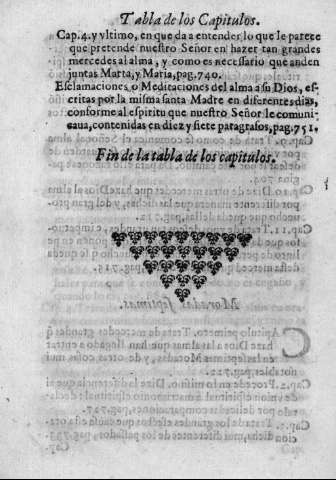 Tabla de los Capitulos.
Cap. 4. y vltimo, en que da a entender lo que le parece
que pretende nuestro Señor en hazer tan grandes
mercedes al alma, y como es necessario que anden
juntas Marta, y Maria, pag. 740.
Esclamaciones, o Meditaciones del alma a su Dios, es-
critas por la misma santa Madre en diferentes dias,
conforme al espiritu que nuestro Señor le comuni-
caua, contenidas en diez y siete paragrafos, pag. 751.
Fin de la tabla de los capitulos.